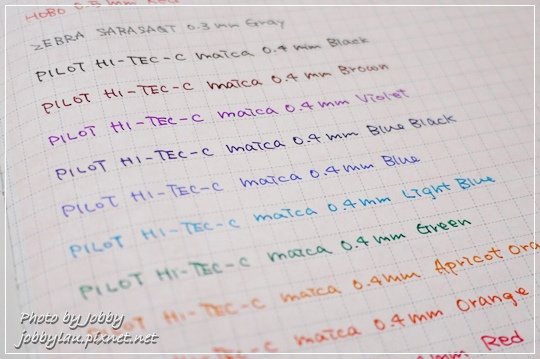 HOBO 0.5 mm Red
ZEBRA SARASAQT 0.3 mm Gray
PILOT HI-TEC-C maica 0.4 mm Black
PILOT HI-TEC-C maica 0.4 mm Brown
PILOT HI-TEC-C maica 0.4 mm Violet
PILOT HI-TEC-C maica 0.4 mm Blue Black
PILOT HI-TEC-C maica 0.4 mm Blue
PILOT HI-TEC-C maica 0.4 mm Light Blue
PILOT HI-TEC-C maica 0.4 mm Green
PILOT HI-TEC-C maica 0.4 mm Apricot Ora
HI-TEC-C maica 0.4 mm Orange
0.4 mm Red
Photo by Jobby
jobbylau.pixnet.net